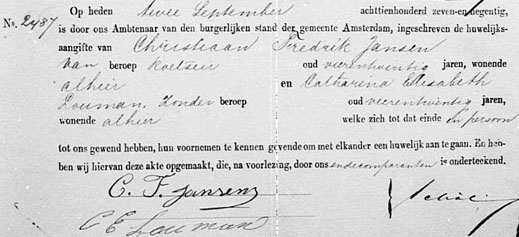 Op heden twee September achttienhonderd zeven-en-negentig,
No. 2487 is door ons Ambtenaar van den burgerlijken stand der gemeente Amsterdam, ingeschreven de huwelijks-
aangifte van Christiaan Fredrik Jansen
van beroep koetsier oud vierentwintig jaren, wonende
alhier en Catharina Elisabeth
Louman, zonder beroep oud vierentwintig jaren,
wonende alhier welke zich tot dat einde in persoon
tot ons gewend hebben, hun voornemen te kennen gevende om met elkander een huwelijk aan te gaan. En heb-
ben wij hiervan deze akte opgemaakt, die, na voorlezing, door ons en de comparanten is onderteekend.
C. F. Jansen
C E Louman